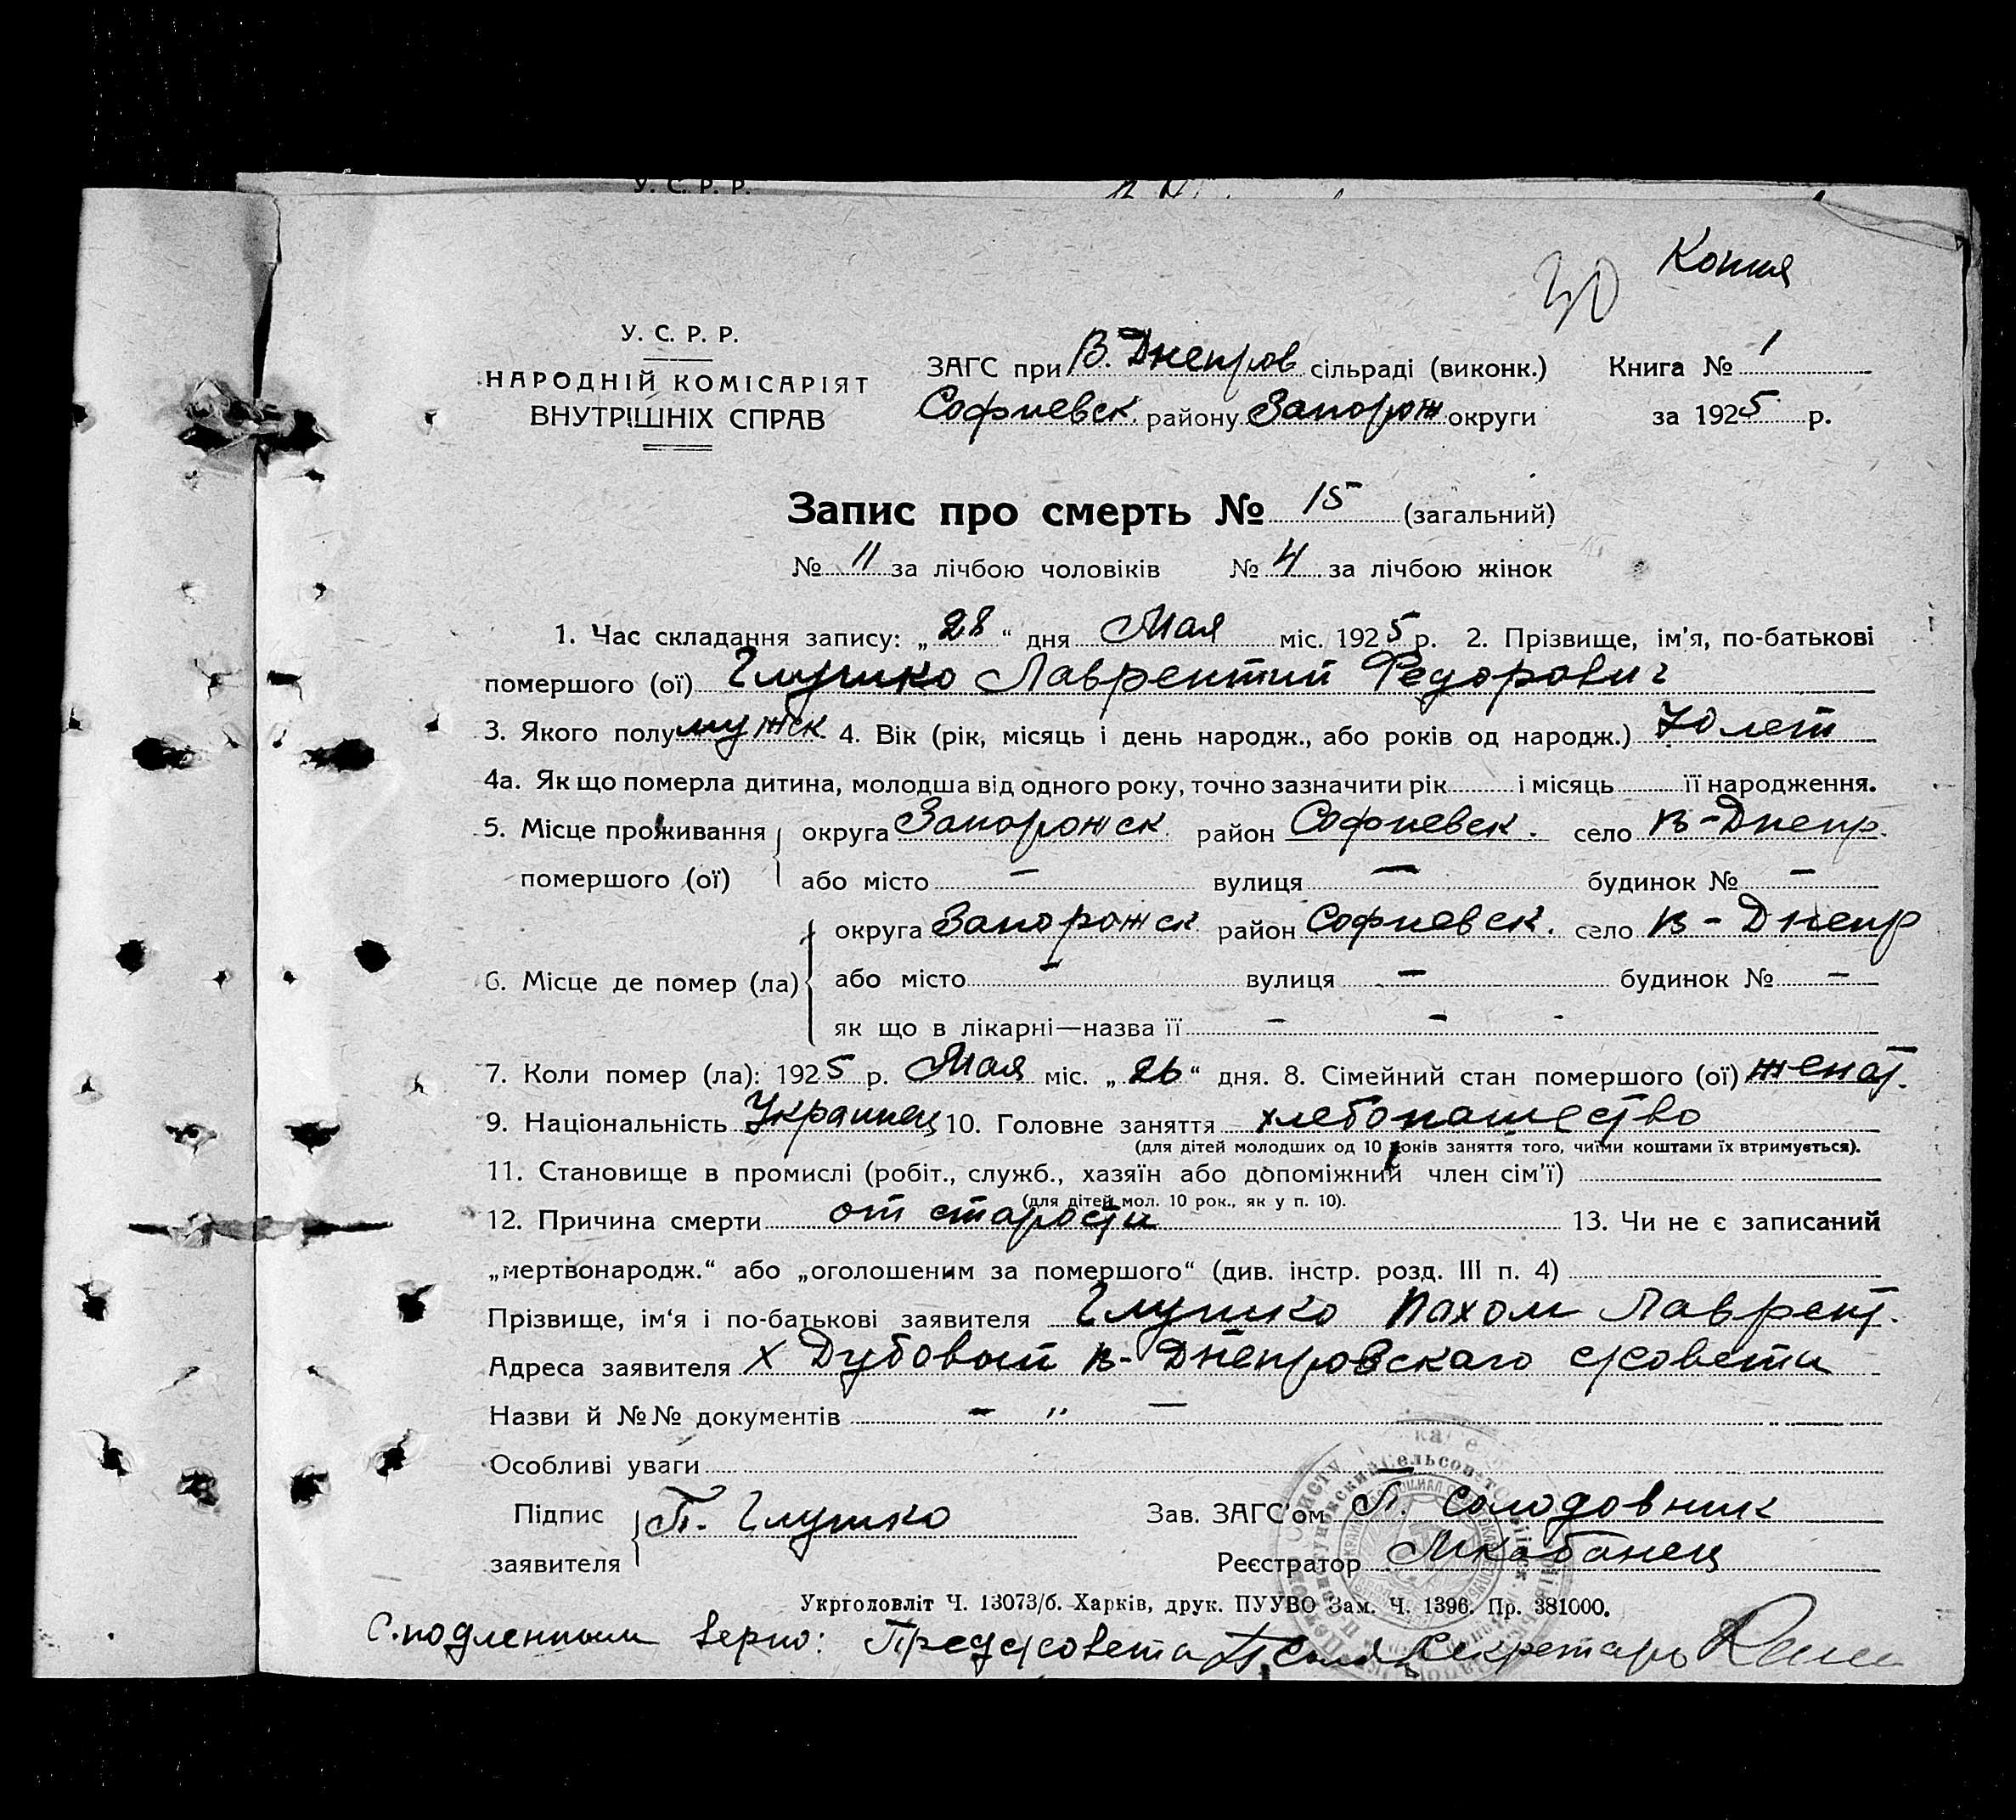 У. С. Р. Р.
Копия
30
У. С. Р. Р.
НАРОДНІЙ КОМІСАРІЯТ
ВНУТРІШНІХ СПРАВ
ЗАГС при В. Днепров сільраді (виконк.) Книга № 1
Софиевск. району Запорож округи за 1925 р.
Запис про смерть № 15 (загальний)
№ 11 за лічбою чоловіків № 4 за лічбою жінок
1. Час складання запису: „28“ дня Мая міс. 1925 р. 2. Прізвище, ім’я, по-батькові
помершого (ої) Глушко Лаврентий Федорович
3. Якого полу мужск 4. Вік (рік, місяць і день народж., або років од народж.) 70 лет
4а. Як що померла дитина, молодша від одного року, точно зазначити рік і місяць її народження.
5. Місце проживання округа Запорожск. район Софиевск. село В-Днепр.
помершого (ої) або місто — вулиця — будинок № —
округа Запорожск район Софиевск. село В-Днепр
6. Місце де помер (ла) або місто — вулиця — будинок № —
як що в лікарні—назва її - - -
7. Коли помер (ла): 1925 р. Мая міс. „26“ дня. 8. Сімейний стан помершого (ої) женат.
9. Національність Украинец 10. Головне заняття хлебопашество
(для дітей молодших од 10 років заняття того, чиїми коштами їх втримується).
11. Становище в промислі (робіт., служб., хазяїн або допоміжний член сім’ї)
(для дітей мол. 10 рок., як у п. 10).
12. Причина смерти от старости 13. Чи не є записаний
„мертвонародж.“ або „оголошеним за помершого“ (див. інстр. розд. III п. 4)
Прізвище, ім‘я і по-батькові заявителя Глушко Пахом Лаврент.
Адреса заявителя х Дубовый В-Днепровскаго с/совета
Назви й №№ документів - „ —
Особливі уваги —
Підпис П. Глушко Зав. ЗАГС’ом П. Солодовник
заявителя Реєстратор
Укрголовліт Ч. 13073/б. Харків, друк. ПУУВО Зам. Ч. 1396. Пр. 381000.
С подленным верно: Пред с/совета П. Секретарь